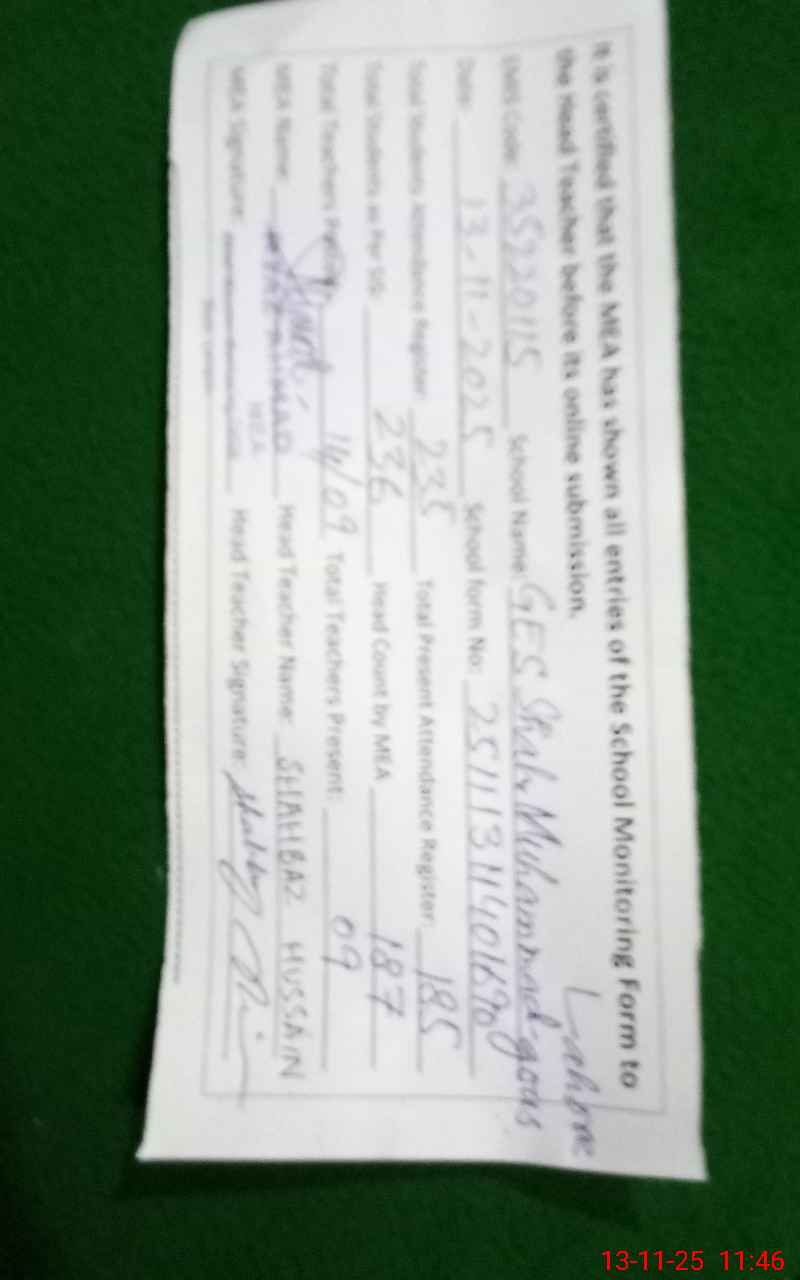 It is certified that the MEA has shown all entries of the School Monitoring Form to
the Head Teacher before its online submission.
Lahore
EMIS Code: 35220115 School Name: GES Shah Muhammad goas
Date: 13-11-2025 School form No:
Total Students Attendance Register: 235 Total Present Attendance Register: 185
Total Students as Per SIS: 236 Head Count by MEA 187
Total Teachers 14/09 Total Teachers Present: 09
MEA Name: Head Teacher Name: SHAHBAZ HUSSAIN
MEA
MEA Signature: Head Teacher Signature:
13-11-25 11:46